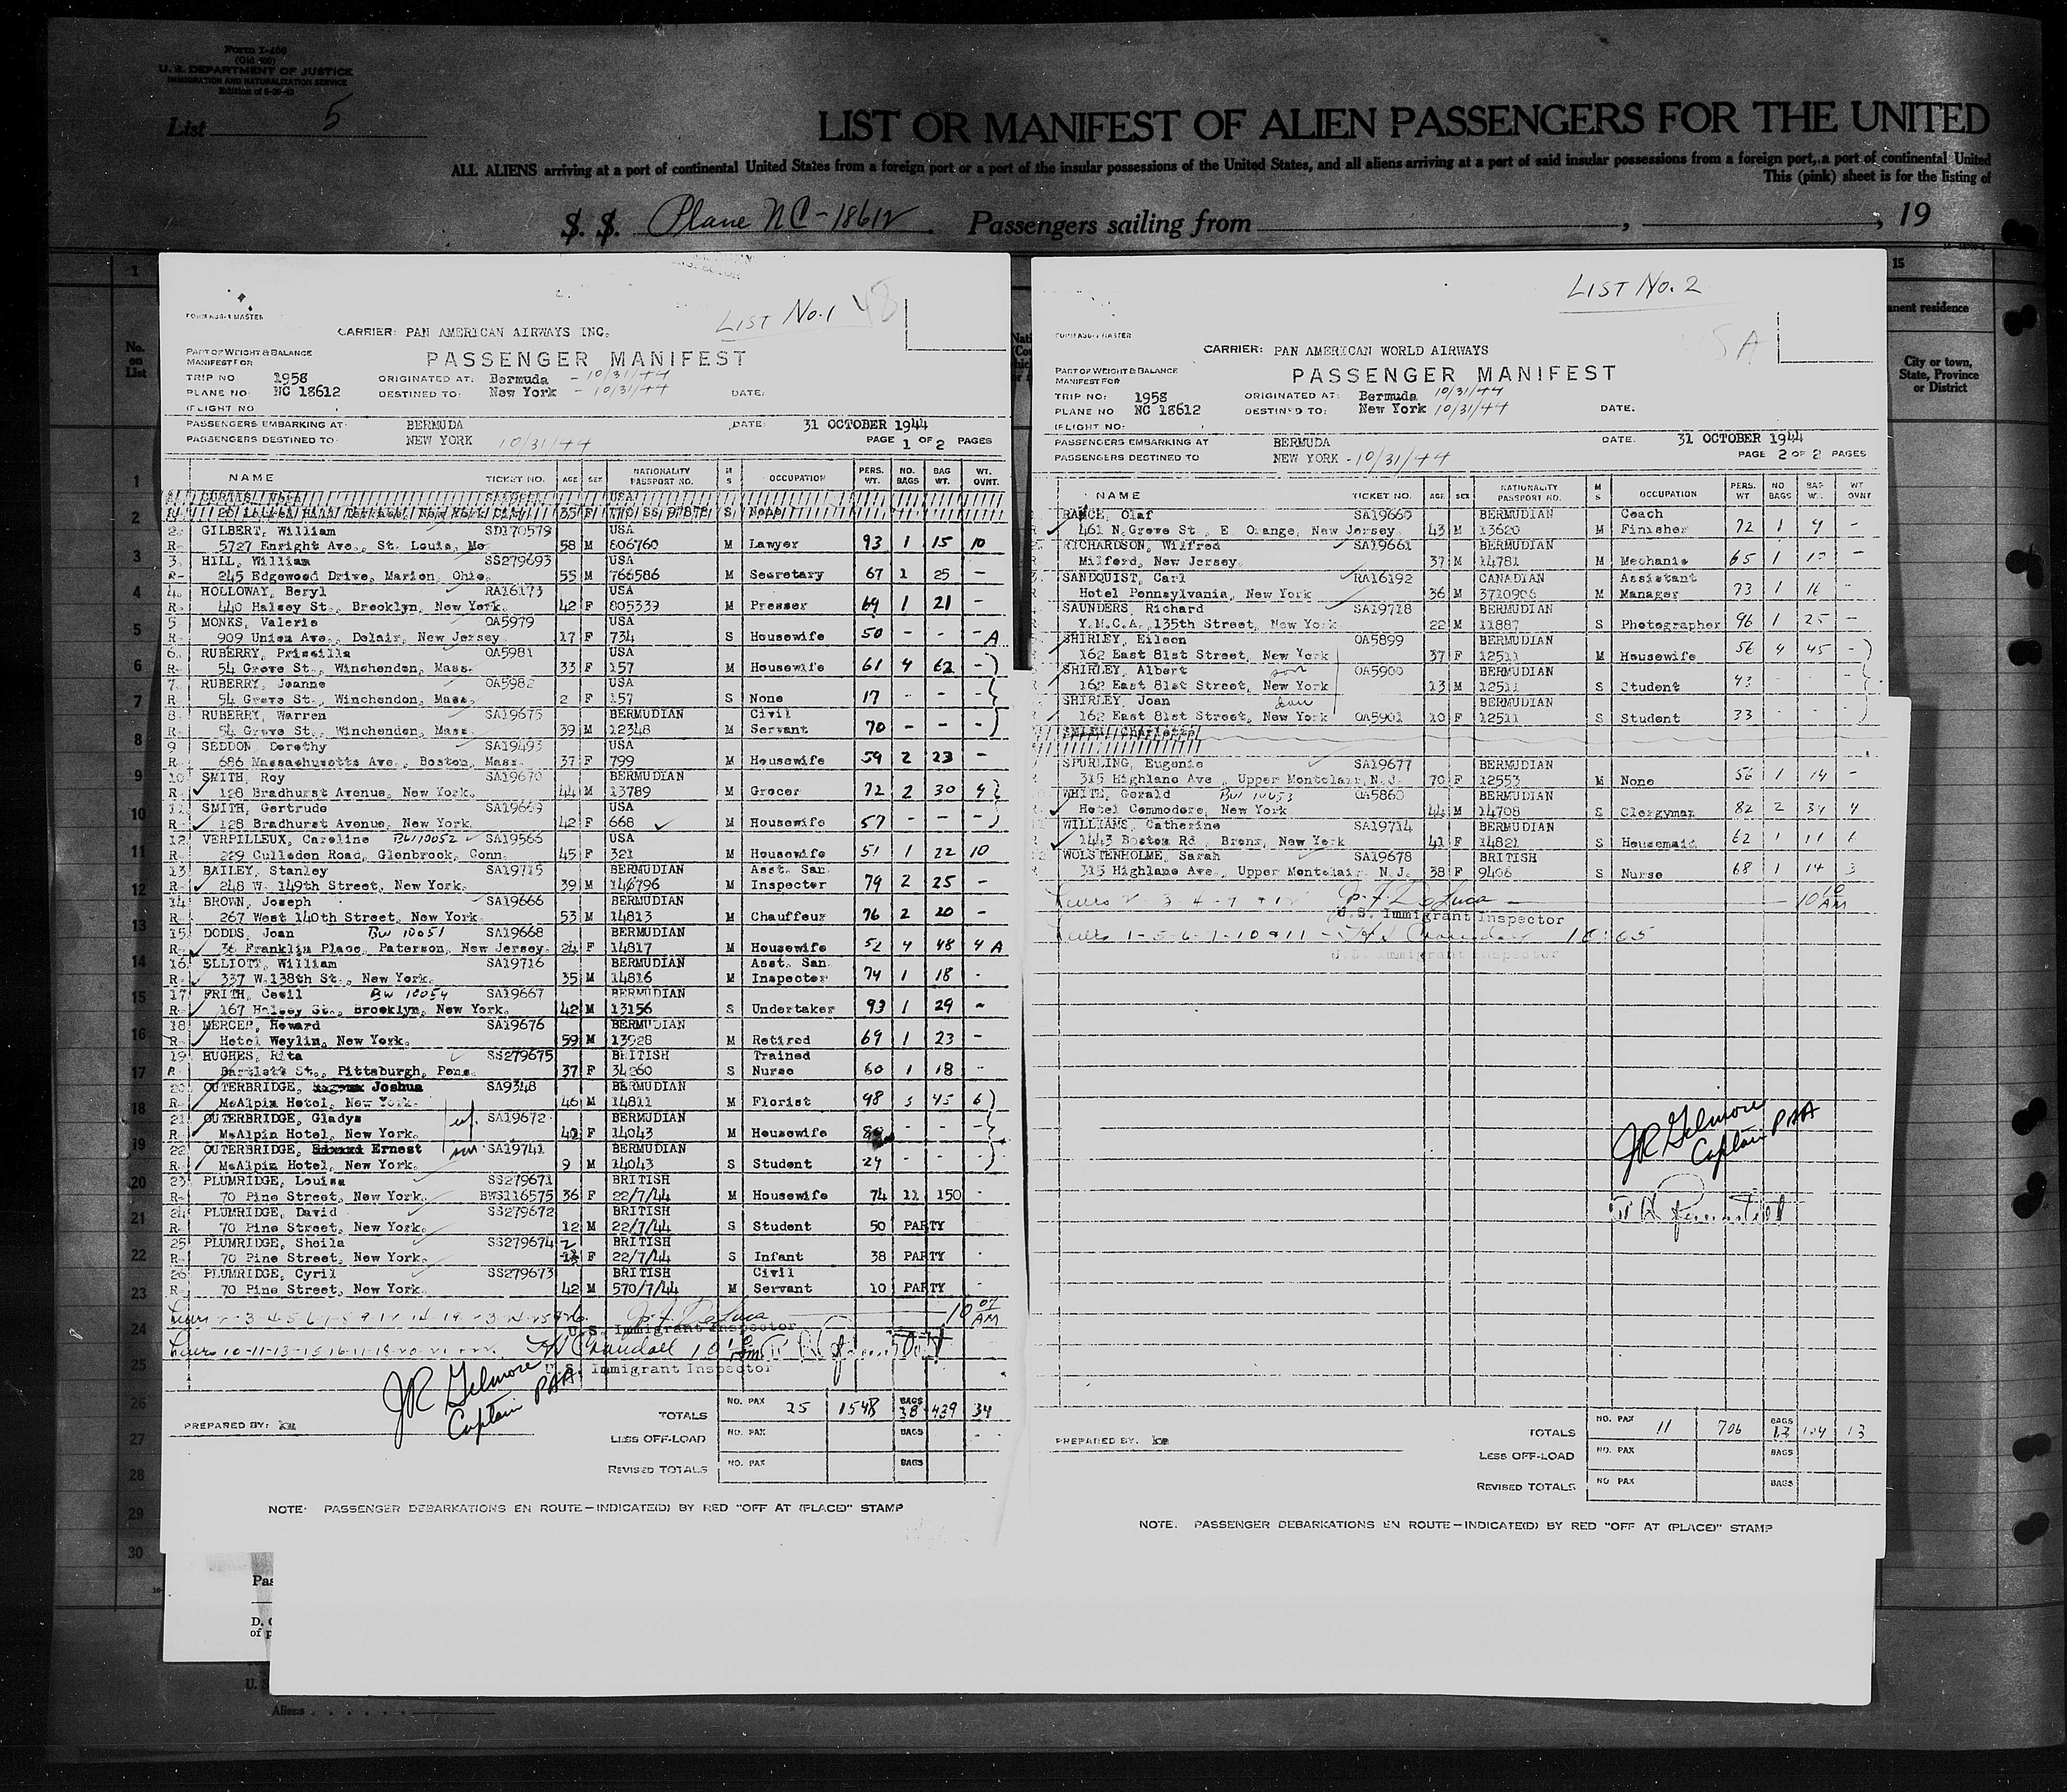 Form I-408
(Old 500)
U. S. DEPARTMENT OF JUSTICE
IMMIGRATION AND NATURALIZATION SERVICE
List 5
LIST OR MANIFEST OF ALIEN PASSENGERS FOR THE UNITED
ALL ALIENS arriving at a port of continental United States from a foreign port or a port of the insular possessions of the United States, and all aliens arriving at a port of said insular possessions from a foreign port, a port of continental United
This (pink) sheet is for the listing of
S. S. Plane NC-18612 Passengers sailing from , , 19
LIST No. 1 48
CARRIER: PAN AMERICAN AIRWAYS INC.
PASSENGER MANIFEST
PART OF WEIGHT & BALANCE
MANIFEST FOR
TRIP NO 1958 ORIGINATED AT: Bermuda - 10/31/44
PLANE NO: NC 18612 DESTINED TO: New York - 10/31/44 DATE:
FLIGHT NO
PASSENGERS EMBARKING AT: BERMUDA DATE: 31 OCTOBER 1944
PASSENGERS DESTINED TO: NEW YORK 10/31/44 PAGE 1 OF 2 PAGES
NAME TICKET NO. AGE SEX NATIONALITY PASSPORT NO. M S OCCUPATION PERS. WT. NO. BAGS BAG WT. WT. OVNT.
CURTIS, USA
35 F S None
2. GILBERT, William SD170579 USA
R- 5727 Enright Ave., St. Louis, Mo 58 M 806760 M Lawyer 93 1 15 10
3. HILL, William SS279693 USA
R- 245 Edgewood Drive, Marion, Ohio. 55 M 766586 M Secretary 67 1 25 -
4. HOLLOWAY, Beryl RA16173 USA
R- 440 Halsey St., Brooklyn, New York. 42 F 805339 M Presser 69 1 21 -
5. MONKS, Valerie OA5979 USA
R- 909 Union Ave., Delair, New Jersey 17 F 734 S Housewife 50 - - - A
6. RUBERRY, Priscilla OA5981 USA
R- 54 Grove St., Winchendon, Mass. 33 F 157 M Housewife 61 4 62 -
7. RUBERRY, Joanne OA5982 USA
R 54 Grove St., Winchendon, Mass. 2 F 157 S None 17 - - -
8. RUBERRY, Warren SA19675 BERMUDIAN Civil
R- 54 Grove St., Winchendon, Mass. 39 M 12348 M Servant 70 - - -
9 SEDDON, Dorothy SA19493 USA
R- 686 Massachusetts Ave., Boston, Mass. 37 F 799 M Housewife 59 2 23 -
10 SMITH, Roy SA19670 BERMUDIAN
R- 128 Bradhurst Avenue, New York. 44 M 13789 M Grocer 72 2 30 4
11 SMITH, Gertrude SA19669 USA
R- 128 Bradhurst Avenue, New York. 42 F 668 M Housewife 57 - - -
12 VERPILLEUX, Caroline BW10052 SA19566 USA
R- 229 Culloden Road, Glenbrook, Conn. 45 F 321 M Housewife 51 1 22 10
13 BAILEY, Stanley SA19715 BERMUDIAN Asst. San.
R- 248 W. 149th Street, New York. 39 M 146796 M Inspector 79 2 25 -
14 BROWN, Joseph SA19666 BERMUDIAN
R- 267 West 140th Street, New York 53 M 14813 M Chauffeur 76 2 20 -
15 DODDS, Joan BW 10051 SA19668 BERMUDIAN
R- 36 Franklin Place, Paterson, New Jersey. 24 F 14817 M Housewife 52 4 48 4 A
16 ELLIOTT, William SA19716 BERMUDIAN Asst. San.
R- 337 W. 138th St., New York. 35 M 14816 M Inspector 74 1 18 -
17 FRITH, Cecil BW 10054 SA19667 BERMUDIAN
R- 167 Halsey St., Brooklyn, New York. 42 M 13156 S Undertaker 93 1 29 -
18 MERCER, Howard SA19676 BERMUDIAN
R- Hotel Weylin, New York. 59 M 13928 M Retired 69 1 23 -
19 HUGHES, Rita SS279675 BRITISH Trained
R Bartlett St., Pittsburgh, Penn. 37 F 34260 S Nurse 60 1 18 -
20 OUTERBRIDGE, Joshua SA9348 BERMUDIAN
R- McAlpin Hotel, New York. 46 M 14811 M Florist 98 5 45 6
21 OUTERBRIDGE, Gladys wf. SA19672 BERMUDIAN
R McAlpin Hotel, New York. 40 F 14043 M Housewife - - -
22 OUTERBRIDGE, Ernest son SA19741 BERMUDIAN
R McAlpin Hotel, New York. 9 M 14043 S Student 24 - - -
23 PLUMRIDGE, Louisa SS279671 BRITISH
R- 70 Pine Street, New York. BWS116575 36 F 22/7/44 M Housewife 74 11 150 -
24 PLUMRIDGE, David SS279672 BRITISH
R- 70 Pine Street, New York. 12 M 22/7/44 S Student 50 PARTY
25 PLUMRIDGE, Sheila SS279674 2 BRITISH
R- 70 Pine Street, New York. F 22/7/44 S Infant 38 PARTY
26 PLUMRIDGE, Cyril SS279673 BRITISH Civil
R- 70 Pine Street, New York. 42 M 570/7/44 M Servant 10 PARTY -
J. F. DeLuca 10 07 AM
U.S. Immigrant Inspector
Crandall
U.S. Immigrant Inspector
JR Gilmore
Captain PAA
PREPARED BY:
TOTALS NO. PAX 25 1548 BAGS 38 439 34
LESS OFF-LOAD NO. PAX BAGS
REVISED TOTALS NO. PAX BAGS
NOTE: PASSENGER DEBARKATIONS EN ROUTE—INDICATE(D) BY RED "OFF AT (PLACE)" STAMP
LIST No. 2
CARRIER: PAN AMERICAN WORLD AIRWAYS
PASSENGER MANIFEST
PART OF WEIGHT & BALANCE
MANIFEST FOR
TRIP NO: 1958 ORIGINATED AT: Bermuda 10/31/44
PLANE NO NC 18612 DESTINED TO: New York 10/31/44 DATE:
FLIGHT NO:
PASSENGERS EMBARKING AT BERMUDA DATE: 31 OCTOBER 1944
PASSENGERS DESTINED TO NEW YORK - 10/31/44 PAGE 2 OF 2 PAGES
NAME TICKET NO. AGE SEX NATIONALITY PASSPORT NO. M S OCCUPATION PERS. WT NO BAGS BAG WT. WT OVNT
Olaf SA19660 BERMUDIAN Coach
461 N. Grove St., E. Orange, New Jersey 43 M 13620 M Finisher 72 1 9 -
RICHARDSON, Wilfred SA19661 BERMUDIAN
Milford, New Jersey. 37 M 14781 M Mechanic 65 1 -
SANDQUIST, Carl RA16192 CANADIAN Assistant
Hotel Pennsylvania, New York 36 M 3710906 M Manager 73 1 16 -
SAUNDERS, Richard SA19718 BERMUDIAN
Y.M.C.A., 135th Street, New York 22 M 11887 S Photographer 96 1 25 -
SHIRLEY, Eileen OA5899 BERMUDIAN
162 East 81st Street, New York 37 F 12511 M Housewife 56 4 45 -
SHIRLEY, Albert son OA5900 BERMUDIAN
162 East 81st Street, New York 13 M 12511 S Student 43 - - -
SHIRLEY, Joan dau BERMUDIAN
162 East 81st Street, New York OA5901 10 F 12511 S Student 33 - - -
SPURLING, Eugenie SA19677 BERMUDIAN
315 Highland Ave., Upper Montclair, N.J. 70 F 12553 M None 56 1 14 -
WHITE, Gerald BW 10053 OA5860 BERMUDIAN
Hotel Commodore, New York 44 M 14708 S Clergyman 82 2 34 4
WILLIAMS, Catherine SA19714 BERMUDIAN
1443 Boston Rd., Bronx, New York 41 F 14821 S Housemaid 62 1 11 6
WOLSTENHOLME, Sarah SA19678 BRITISH
315 Highland Ave., Upper Montclair, N.J. 38 F 9406 S Nurse 68 1 14 3
J. F. DeLuca AM
U.S. Immigrant Inspector
U.S. Immigrant Inspector
JR Gilmore
Captain PAA
PREPARED BY:
TOTALS NO. PAX 11 706 BAGS 13 13
LESS OFF-LOAD NO. PAX BAGS
REVISED TOTALS NO PAX BAGS
NOTE: PASSENGER DEBARKATIONS EN ROUTE—INDICATE(D) BY RED "OFF AT (PLACE)" STAMP
15
City or town,
State, Province
or District
No.
on
List
Aliens